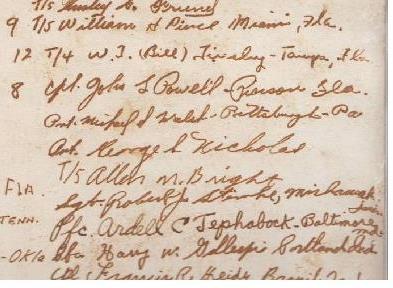 T/5
9 T/5 William H Pierce Miami, Fla.
12 T/4 W. J. (Bill) Tinsley - Tampa, Fla
8 Cpl. John L Powell - Pierson Fla.
Pvt. Michael J Walsh - Pittsburgh - Pa
Pvt. George L Nicholas
FLA. T/5 Allen M. Bright
Sgt. Robert J. Starke,
TENN. Pfc. Ardell C Tephabock - Baltimore Md.
- OKLA Pfc Harry W. Gillespie Portland Ind
Francis R.